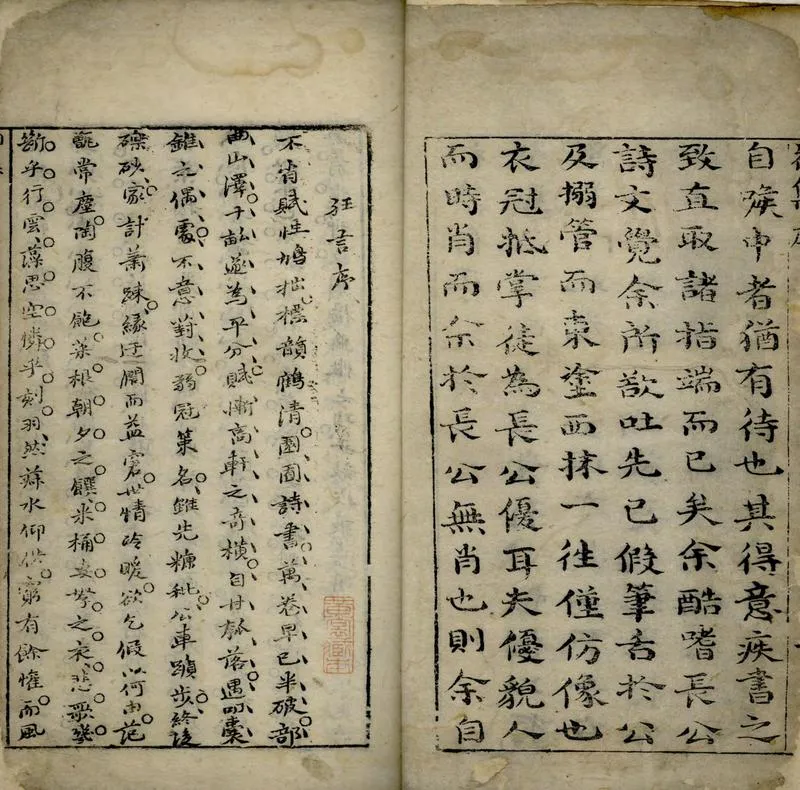 自喉中者猶有待也其得意疾書之
致直取諸指端而已矣余酷嗜長公
詩文覺余所欲吐先已假筆舌於公
及搦管而東塗西抹一往僅仿像也
衣冠抵掌徒為長公優耳夫優貌人
而時肖而余於長公無肖也則余自
狂言序
不肖賦性鳩拙標韻鶴清園圃詩書萬卷早已半破部
曲山澤千畝遂為平分賦慚高軒之奇橫自甘瓠落遇叨囊
錐之偶露不意葑收弱冠策名雖先糠秕公車躓步終
礫砂家計蕭踈緣迂闊而益窘世情冷暖欲乞假以何由范
甑常塵陶腹不飽菜根朝夕之饌米桶妻孥之哀悲歌發
斷乎行雲藻思空憐乎刻羽然薪水仰供窮有餘懽而風